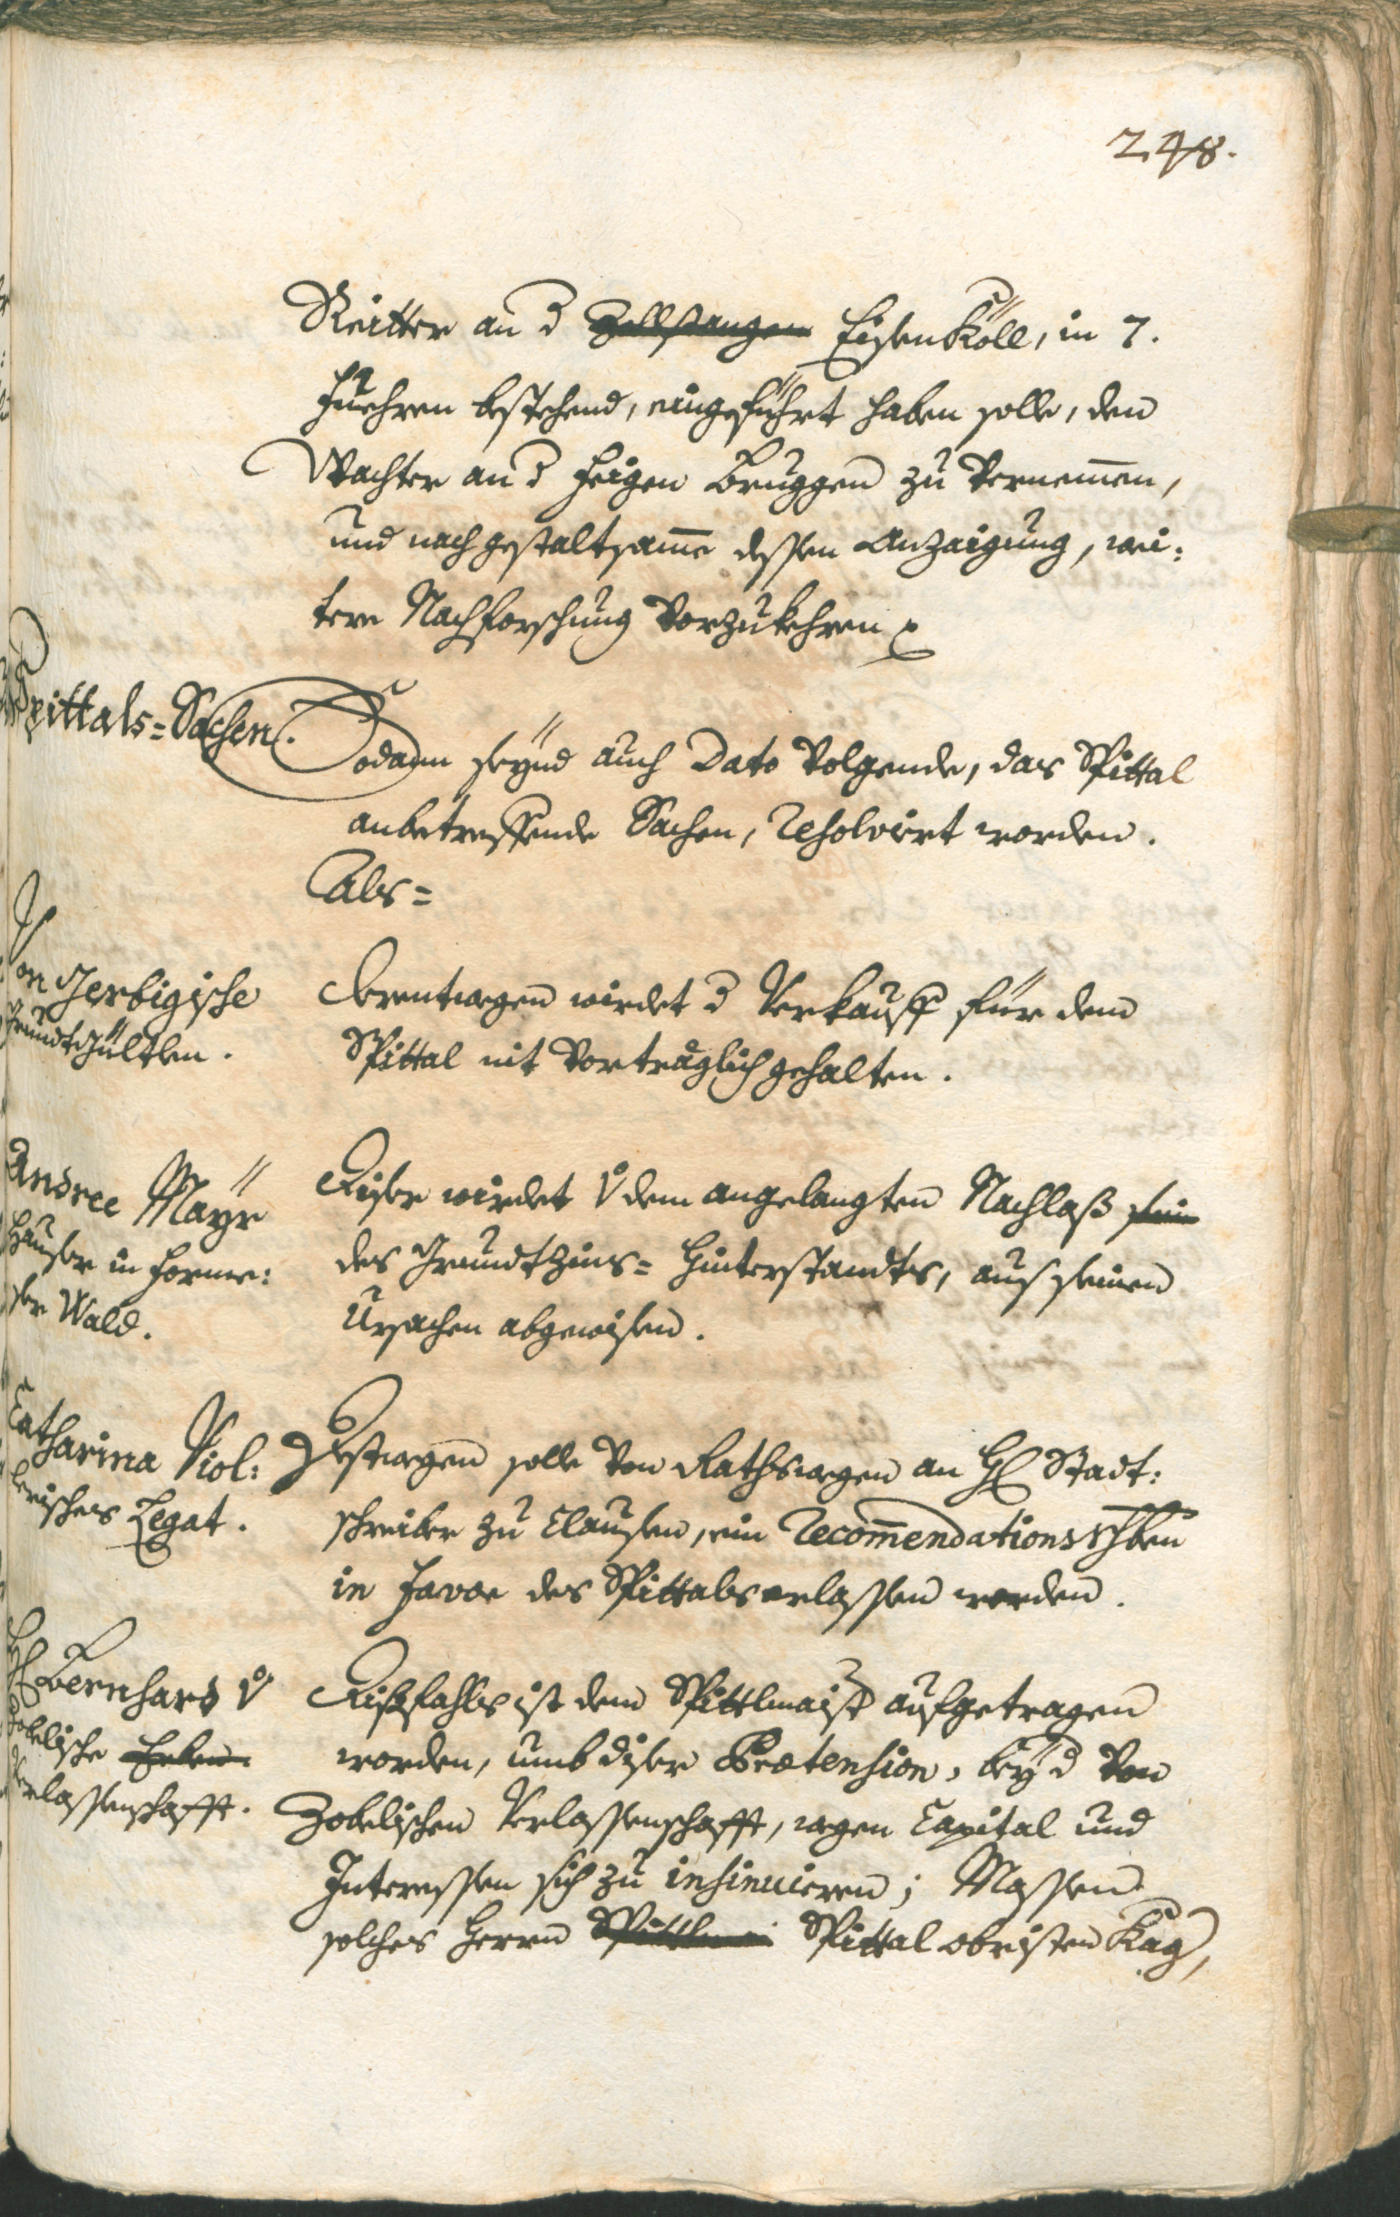 248.
Reitter an d Zollstangen Eisenköll, in 7.
fuehren bestehend, eingeführt haben solle, den
Wachter an d Eisgen Bruggen zu Vernemen,
und nach gestaltsame dessen Anzaigung, wei:
tere Nachforschung Vorzukehren
Spittals=Sachen.
Sodann seynd auch Dato Volgende, das Spittal
anbetreffende Sachen, Resolvirt worden.
als=
Von Jerbigische
Grundt Gülten.
Derentwegen wirdet d Verkauff für dem
Spittal nit Vorträglich gehalten.
Andree Mayr
Hauser in Forner:
ser Wald.
Diser wirdet v dem angelangten Nachlaß sein
des Grundtzins= Hinterstandts, aus seinen
Ursachen abgewisen.
Catharina Viol:
lerisches Legat.
Destwegen solle Von Rathswegen an H Stadt:
schreiber zu Clausen, ein Recommendationsschben
in favor des Spittals erlassen werden.
H Bernhard v
Zobelische Erben
Verlassenschafft.
Dißfahls ist dem Spittlmaist aufgetragen
worden, umb diser Praetension, bey d Von
Zobelischen Verlassenschafft, wegen Capital und
Interessen sich zu insinuieren; Massen
solches Herrn Spittlmai Spittal obristen Kag,